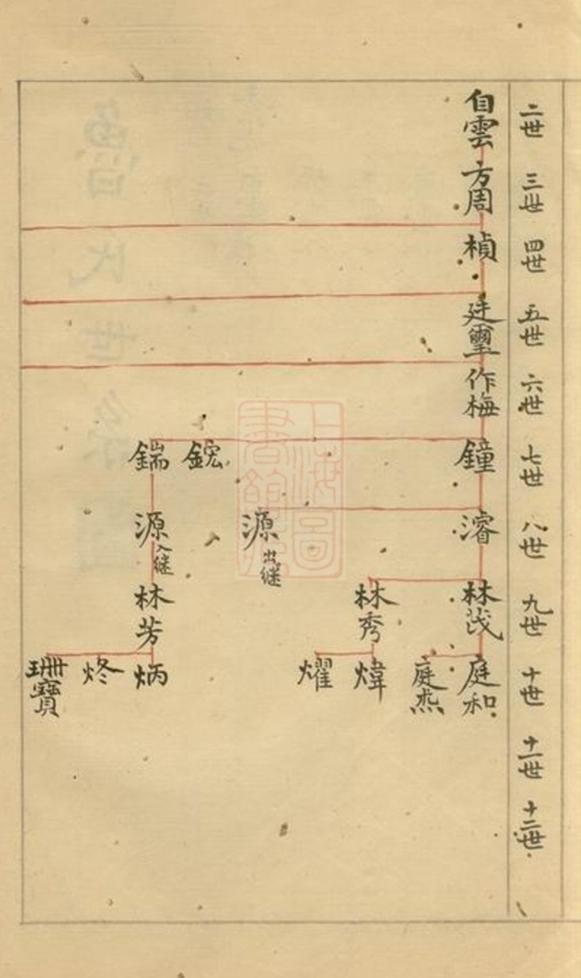 二世
三世
四世
五世
六世
七世
八世
九世
十世
十一世
十二世
自雲
方周
楨
廷璽
作梅
鐘
濬
林茂
庭和
庭杰
林秀
煒
燿
源
出継
鋐
鍴
源
入継
林芳
炳
炵
珊寶
上海圖書館藏